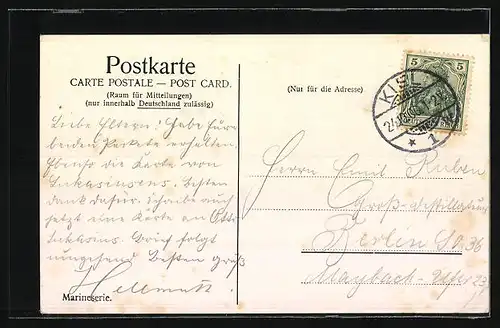 Postkarte
CARTE POSTALE — POST CARD.
(Raum für Mitteilungen)
(nur innerhalb Deutschland zulässig)
Liebe Eltern! Habe Eure
beiden Pakete erhalten.
Ebenso die Karte von
Lukasiusens. Besten
Dank dafür. Schreibe auch
jetzt eine Karte an Otti
Lukasius. Brief folgt
umgehend Besten Gruß
Hellmuth.
Marineserie.
(Nur für die Adresse)
5 5
KIEL
* 1
Herrn Emil Ruben
Groß-destillateur
Berlin SO. 36
Maybach-Ufer 23